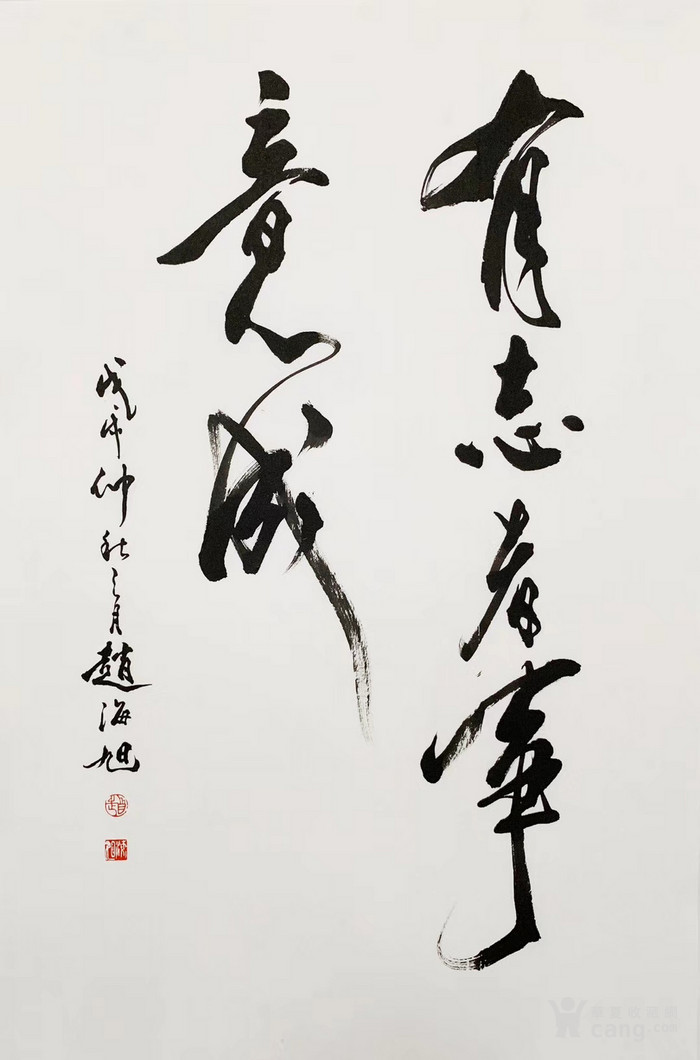 有志者事
竟成
仲秋之月趙海旭
cang.com